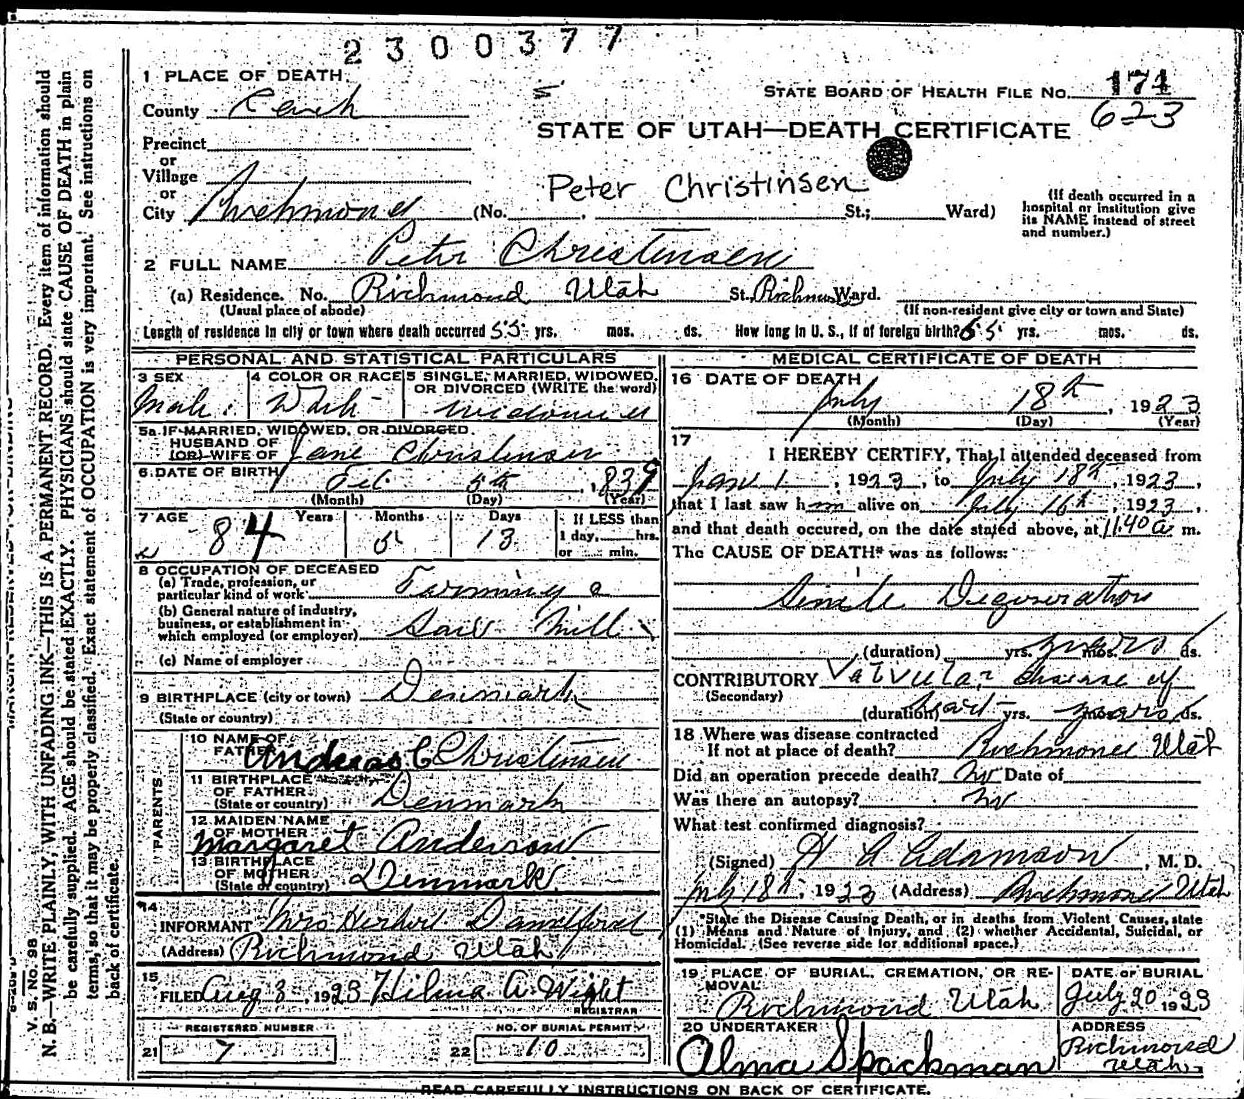 2300377
1 PLACE OF DEATH
County Cache
STATE BOARD OF HEALTH FILE No. 174
623
STATE OF UTAH—DEATH CERTIFICATE
Precinct
or
Village
or
City Richmond (No. , St.; Ward)
Peter Christinsen
(If death occurred in a hospital or institution give its NAME instead of street and number.)
2 FULL NAME Peter Christensen
(a) Residence. No. Richmond Utah St. Richmond Ward.
(Usual place of abode) (If non-resident give city or town and State)
Length of residence in city or town where death occurred 55 yrs. mos. ds. How long in U. S., if of foreign birth? 65 yrs. mos. ds.
PERSONAL AND STATISTICAL PARTICULARS
3 SEX
Male
4 COLOR OR RACE
White
5 SINGLE, MARRIED, WIDOWED, OR DIVORCED (WRITE the word)
widowed
5a IF MARRIED, WIDOWED, OR DIVORCED
HUSBAND OF
(OR) WIFE OF Jane Christensen
6 DATE OF BIRTH Feb. 5th, 1839
(Month) (Day) (Year)
7 AGE Years Months Days If LESS than
84 5 13 1 day, hrs.
or min.
8 OCCUPATION OF DECEASED
(a) Trade, profession, or
particular kind of work Farming &
(b) General nature of industry,
business, or establishment in
which employed (or employer) Saw Mill
(c) Name of employer
9 BIRTHPLACE (city or town) Denmark
(State or country)
PARENTS
10 NAME OF
FATHER Andreas C Christensen
11 BIRTHPLACE
OF FATHER
(State or country) Denmark
12 MAIDEN NAME
OF MOTHER
Margaret Anderson
13 BIRTHPLACE
OF MOTHER
(State or country) Denmark
14
INFORMANT Mrs Herbert
(Address) Richmond Utah
15
FILED Aug 3, 1923 Hilma A. Wight
REGISTRAR
REGISTERED NUMBER NO. OF BURIAL PERMIT
21 7 22 10
MEDICAL CERTIFICATE OF DEATH
16 DATE OF DEATH
July 18th, 1923
(Month) (Day) (Year)
17
I HEREBY CERTIFY, That I attended deceased from
Jan 1, 1923, to July 18th, 1923,
that I last saw him alive on July 16th, 1923,
and that death occured, on the date stated above, at 11.40 a m.
The CAUSE OF DEATH* was as follows:
Senile Degeneration
(duration) yrs. years mos. ds.
CONTRIBUTORY Valvular disease of
(Secondary)
(duration) heart yrs. years mos. ds.
18 Where was disease contracted
If not at place of death? Richmond Utah
Did an operation precede death? No Date of
Was there an autopsy? No
What test confirmed diagnosis?
(Signed) Adamson, M. D.
July 18th, 1923 (Address) Richmond Utah
*State the Disease Causing Death, or in deaths from Violent Causes, state
(1) Means and Nature of Injury, and (2) whether Accidental, Suicidal, or
Homicidal. (See reverse side for additional space.)
19 PLACE OF BURIAL, CREMATION, OR RE-
MOVAL
Richmond Utah
DATE OF BURIAL
July 20 1923
20 UNDERTAKER
Alma Spackman
ADDRESS
Richmond
Utah
READ CAREFULLY INSTRUCTIONS ON BACK OF CERTIFICATE.
V. S. No. 98
N. B.—WRITE PLAINLY, WITH UNFADING INK—THIS IS A PERMANENT RECORD. Every item of information should
be carefully supplied. AGE should be stated EXACTLY. PHYSICIANS should state CAUSE OF DEATH in plain
terms, so that it may be properly classified. Exact statement of OCCUPATION is very important. See instructions on
back of certificate.